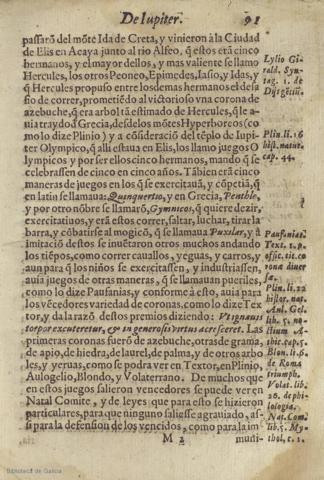 De Iupiter. 91
passarõ del mõte Ida de Creta, y vinieron à la Ciudad
de Elis en Acaya junto al rio Alfeo, q̃ estos erã cinco
hermanos, y el mayor dellos, y mas valiente se llamo
Hercules, los otros Peoneo, Epimedes, Iasio, y Idas, y
q̃ Hercules propuso entre los demas hermanos el desa
fio de correr, prometiẽdo al victorioso vna corona de
azebuche, q̃ era arbol tã estimado de Hercules, que a-
uia traydo à Grecia, desde los mõtes Hyperboreos (co
mo lo dize Plinio) y a cõsideraciõ del tẽplo de Iupi-
ter Olympico, q̃ alli estaua en Elis, los llamo juegos O
lympicos y por ser ellos cinco hermanos, mandò q̃ se
celebrassen de cinco en cinco años. Tãbien erã cinco
maneras de juegos en los q̃ se exercitauã, y cõpetiã, q̃
en latin se llamaua: Quinquertio, y en Grecia, Penthlo,
y por otro nõbre se llamarõ, Gymnicos, q̃ quiere dezir,
exercitatiuos, y erã estos correr, saltar, luchar, tirar la
barra, y cõbatirse al mogicõ, q̃ se llamaua Puxilar, y à
imitaciõ destos se inuẽtaron otros muchos andando
los tiẽpos, como correr cauallos, yeguas, y carros, y
aun para q̃ los niños se exercitassen, y industriassen,
auia juegos de otras maneras, q̃ se llamauan pueriles,
como lo dize Pausanias, y conforme à esto, auia para
los vẽcedores variedad de coronas, como lo dize Tex
tor, y da la razõ destos premios diziendo: Vt ignauis
torpor excuteretur, & ingenerosis virtus acresceret. Las
primeras coronas fuerõ de azebuche, otras de grama,
de apio, de hiedra, de laurel, de palma, y de otros arbo
les, y yeruas, como se podra ver en Textor, en Plinio,
Aulogelio, Blondo, y Volaterrano. De muchos que
en estos juegos salieron vencedores se puede ver en
Natal Comite, y de leyes que para esto se hizieron
particulares, para que ninguno saliesse agrauiado, as-
si para la defension de los vencidos, como para im
M 2 muni-
Lylio Gi-
rald. Syn-
tag. 1. de
Dijs gẽtiũ.
Plin. li. 16
hist. natur.
cap. 44.
Pausanias.
Text. 1. p.
offic. tit. co
rona diuer
sa.
Plin. li. 22
histor. nat.
Aul. Gel.
lib. 5. no-
ctium A-
thic. cap. 5.
Blon. li. 6.
de Roma
triumph.
Volat. lib.
de phi-
lologia.
Nat. Com.
lib. 5. My-
thol. c. 1.
Biblioteca de Galicia